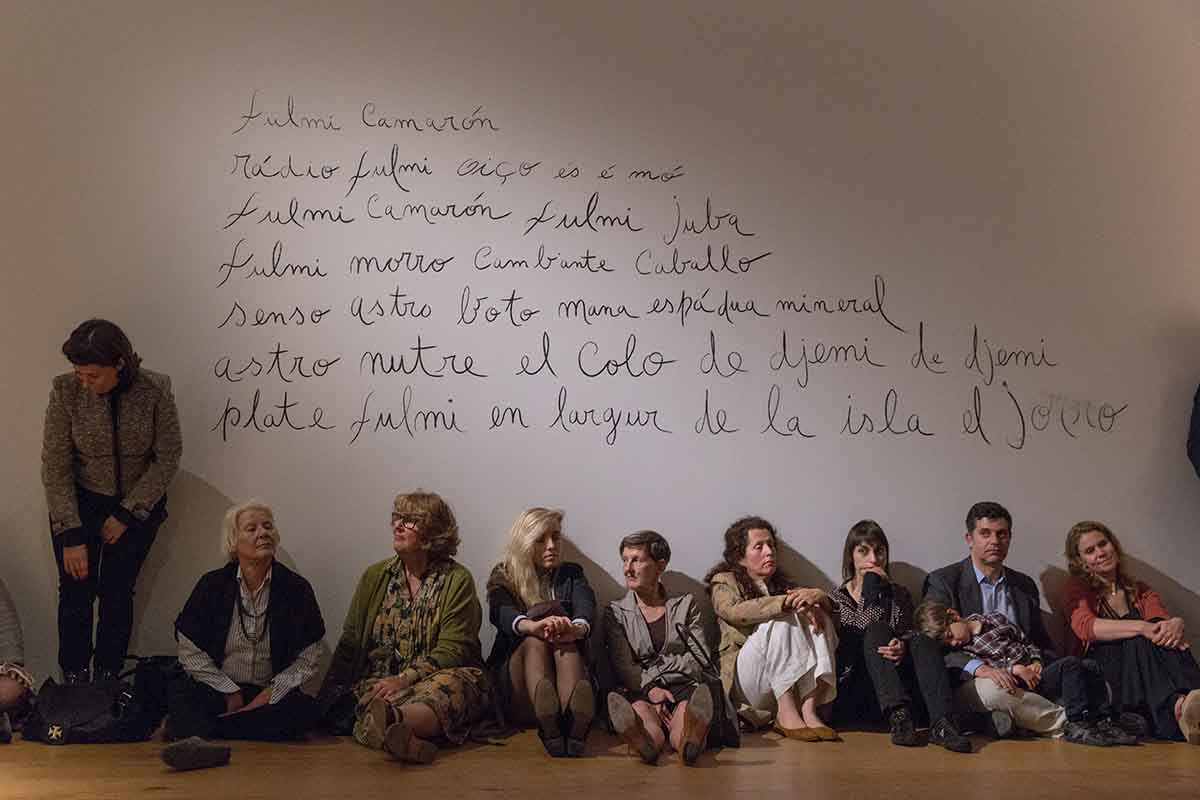 fulmi Camarón
rádio fulmi oiço és é mó
fulmi Camarón fulmi juba
fulmi morro Cambiante Caballo
senso astro boto mana espádua mineral
astro nutre el Colo de djemi de djemi
plate fulmi en largur de la isla el jorro